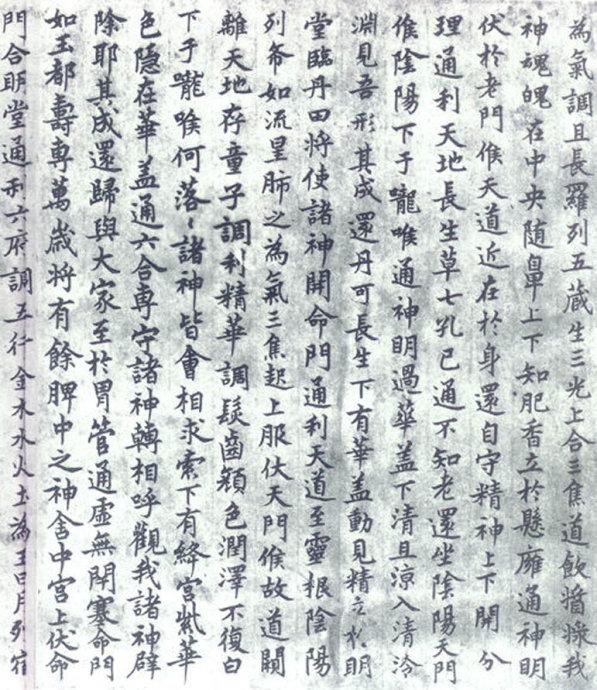 為氣調且長羅列五藏生三光上合三焦道飲醬掾我
神魂魄在中央随鼻上下知肥香立於懸癕通神明
伏於老門候天道近在於身還自守精神上下開分
理通利天地長生草七孔已通不知老還坐陰陽天門
候陰陽下于嚨喉通神明過華盖下清且凉入清泠
淵見吾形其成還丹可長生下有華盖動見精立於明
堂臨丹田將使諸神開命門通利天道至靈根陰陽
列布如流星肺之為氣三焦起上服伏天門候故道闚
離天地存童子調利精華調髮齒顏色潤澤不復白
下于嚨喉何落〻諸神皆會相求索下有絳宮紫華
色隱在華盖通六合專守諸神轉相呼觀我諸神辟
除耶其成還歸與大家至於胃管通虛無閉塞命門
如玉都壽專萬歲將有餘脾中之神舍中宮上伏命
門合明堂通利六府調五行金木水火土為王日月列宿